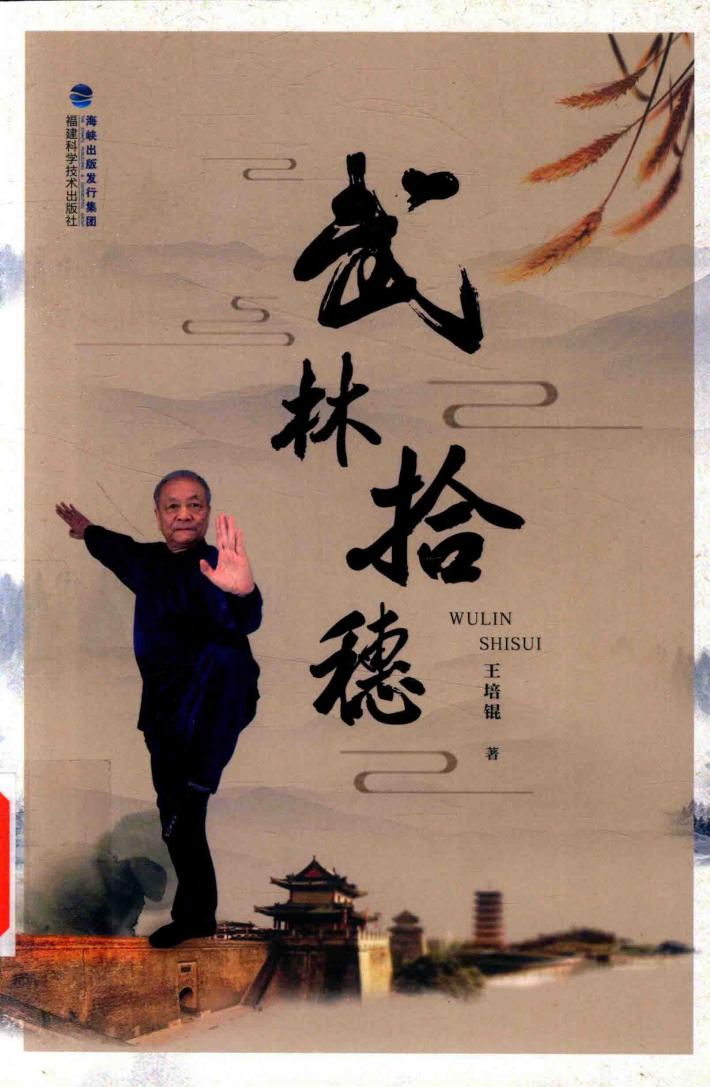 海峡出版发行集团
福建科学技术出版社
武林拾穗
WULIN
SHISUI
王培锟 著